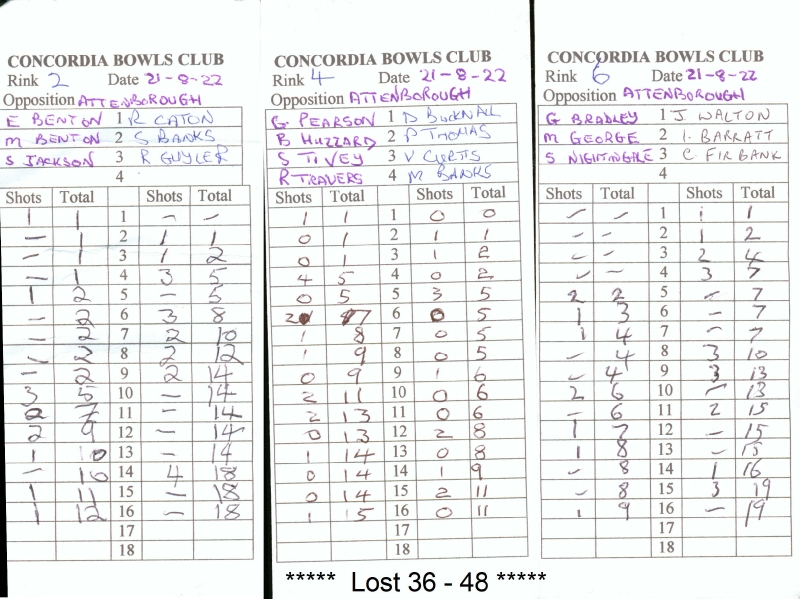 CONCORDIA BOWLS CLUB
Rink 2 Date 21-8-22
Opposition ATTENBOROUGH
E BENTON 1 R CATON
M BENTON 2 S BANKS
S JACKSON 3 R GUYLER
4
Shots Total Shots Total
1 1 1 – –
– 1 2 1 1
– 1 3 1 2
– 1 4 3 5
1 2 5 – 5
– 2 6 3 8
– 2 7 2 10
– 2 8 2 12
– 2 9 2 14
3 5 10 – 14
2 7 11 – 14
2 9 12 – 14
1 10 13 – 14
– 10 14 4 18
1 11 15 – 18
1 12 16 – 18
17
18
CONCORDIA BOWLS CLUB
Rink 4 Date 21-8-22
Opposition ATTENBOROUGH
G PEARSON 1 D BUCKNALL
B HUZZARD 2 P THOMAS
S TIVEY 3 V CURTIS
R TRAVERS 4 M BANKS
Shots Total Shots Total
1 1 1 0 0
0 1 2 1 1
0 1 3 1 2
4 5 4 0 2
0 5 5 3 5
2 7 6 0 5
1 8 7 0 5
1 9 8 0 5
0 9 9 1 6
2 11 10 0 6
2 13 11 0 6
0 13 12 2 8
1 14 13 0 8
0 14 14 1 9
0 14 15 2 11
1 15 16 0 11
17
18
CONCORDIA BOWLS CLUB
Rink 6 Date 21-8-22
Opposition ATTENBOROUGH
G BRADLEY 1 J WALTON
M GEORGE 2 I. BARRATT
S NIGHTINGALE 3 C FIRBANK
4
Shots Total Shots Total
– – 1 1 1
– – 2 1 2
– – 3 2 4
– – 4 3 7
2 2 5 – 7
1 3 6 – 7
1 4 7 – 7
– 4 8 3 10
– 4 9 3 13
2 6 10 – 13
– 6 11 2 15
1 7 12 – 15
1 8 13 – 15
– 8 14 1 16
– 8 15 3 19
1 9 16 – 19
17
18
***** Lost 36 - 48 *****